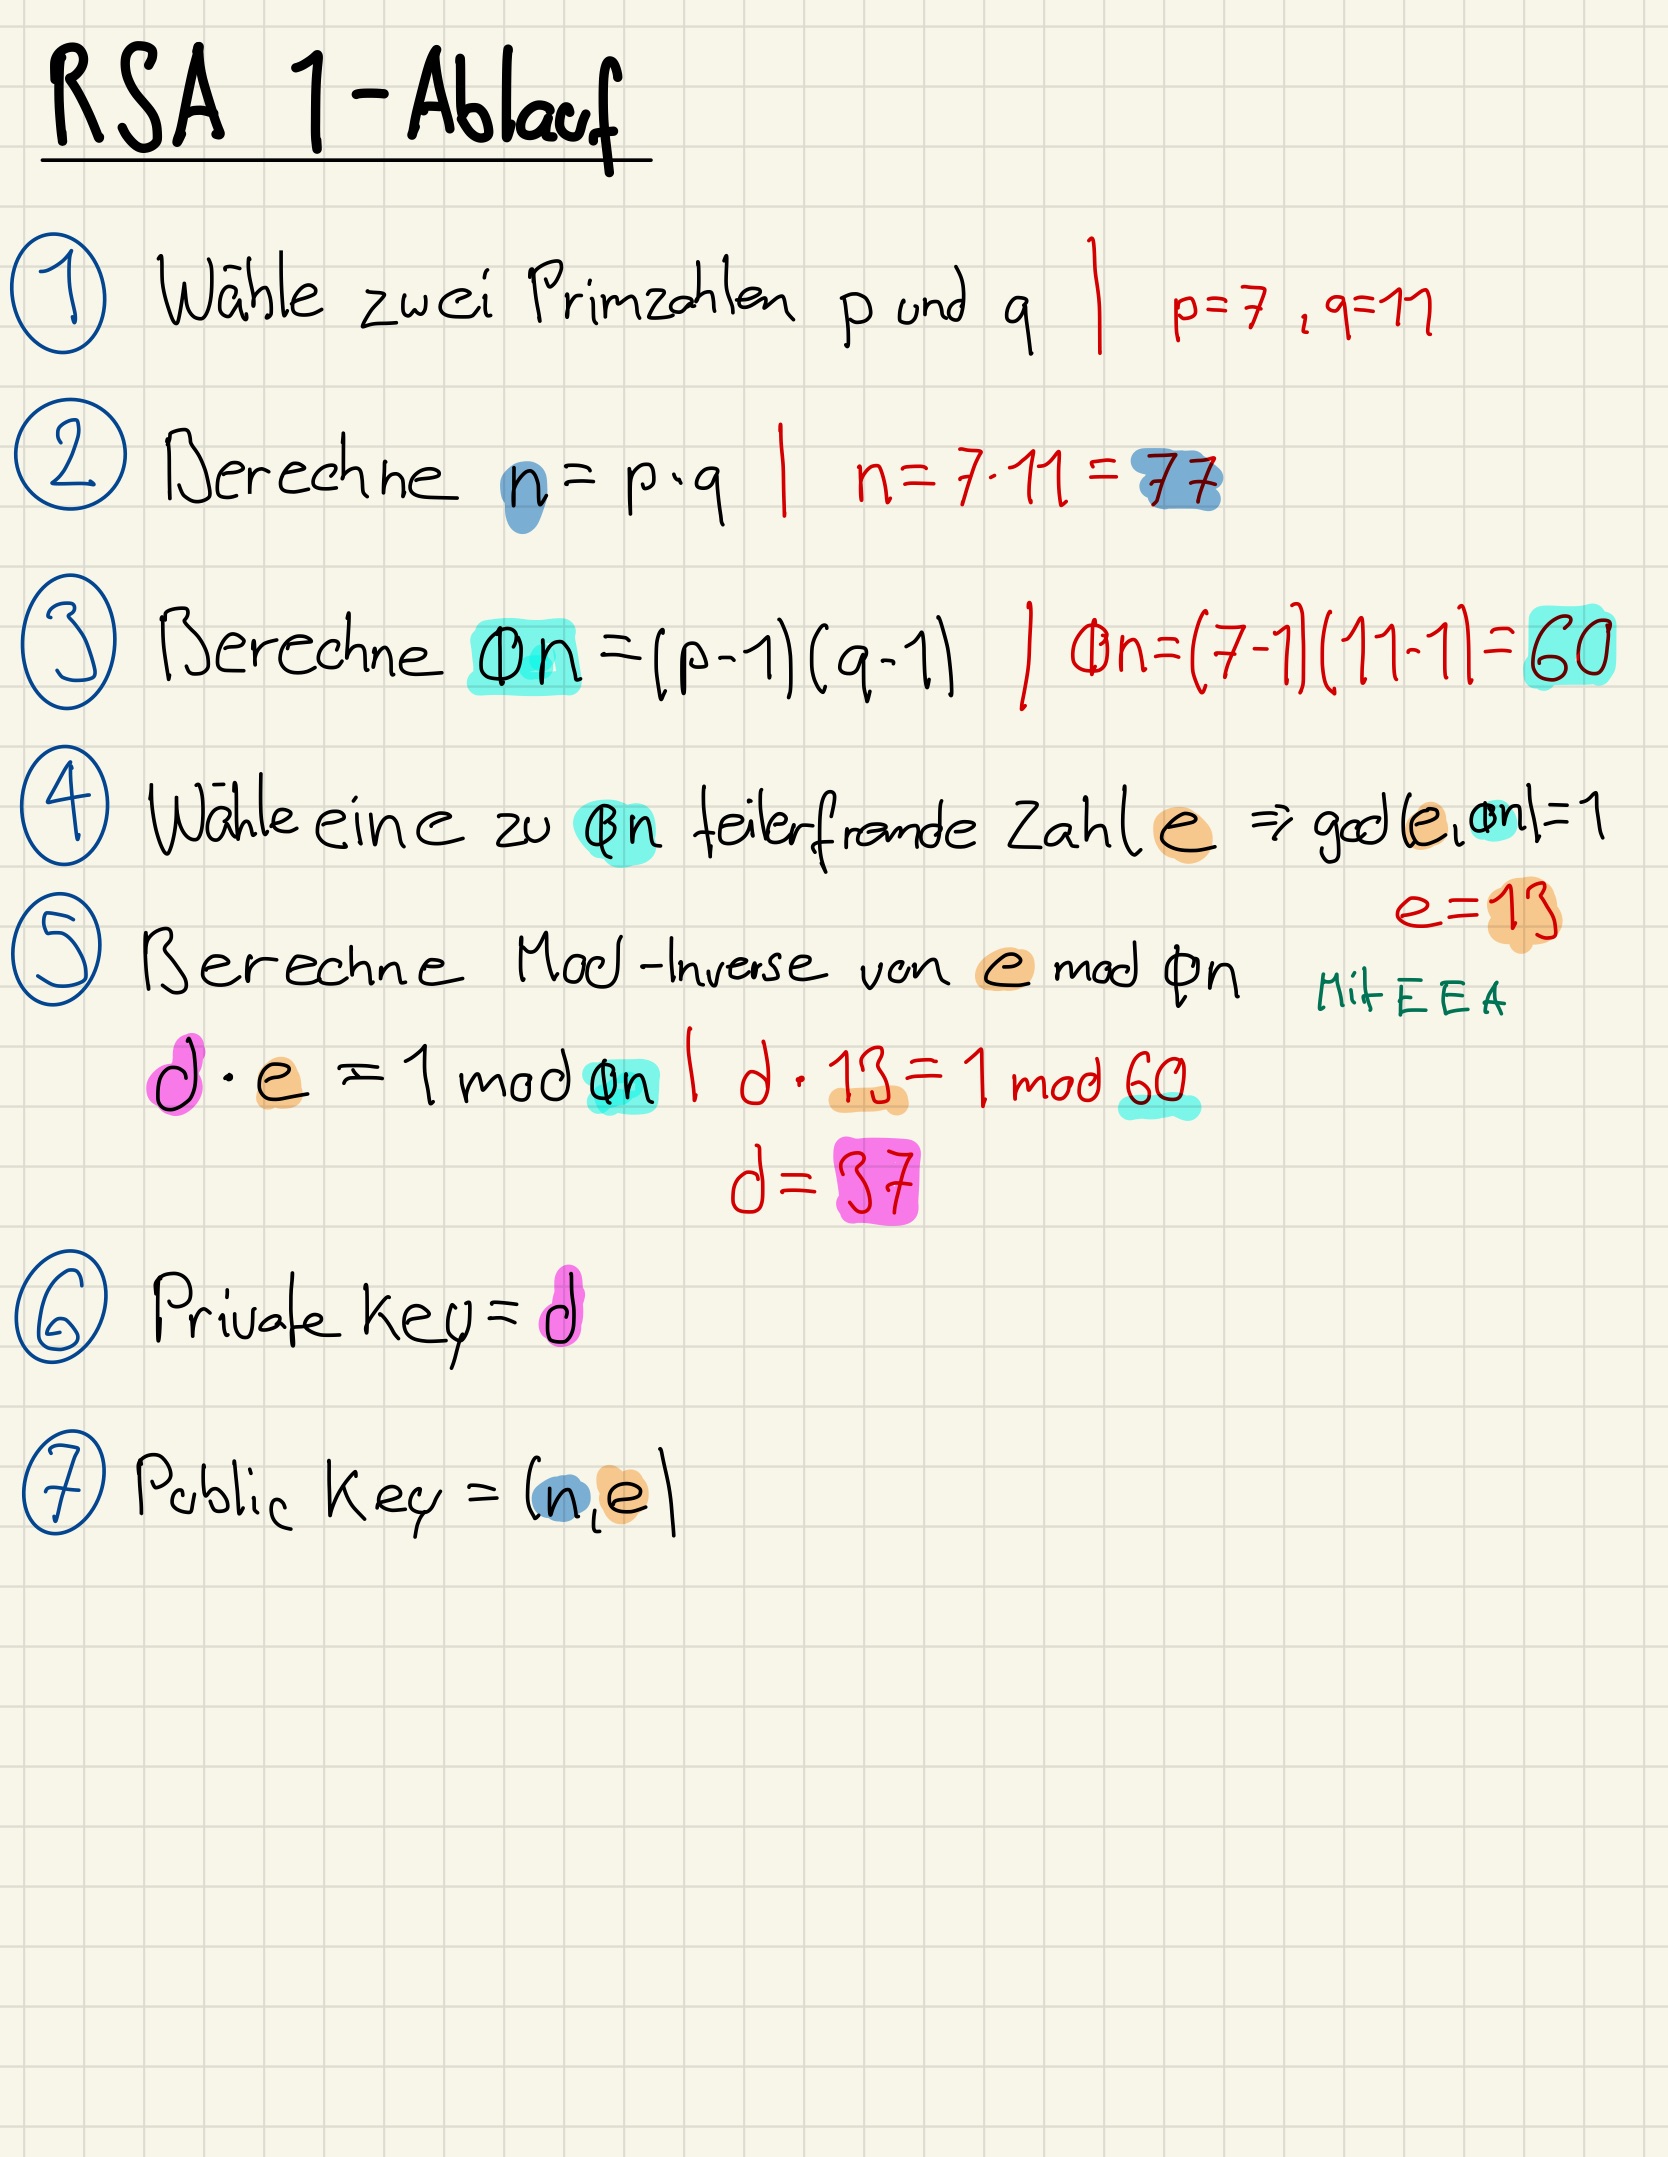 RSA 1-Ablauf
1 Wähle zwei Primzahlen p und q | p=7, q=11
2 Berechne n = p·q | n=7·11=77
3 Berechne Φn=(p-1)(q-1) | Φn=(7-1)(11-1)=60
4 Wähle eine zu Φn teilerfremde Zahl e ⇒ gcd(e,Φn)=1
e=13
5 Berechne Mod-Inverse von e mod Φn Mit EEA
d·e = 1 mod Φn | d·13=1 mod 60
d=37
6 Private Key=d
7 Public Key=(n,e)